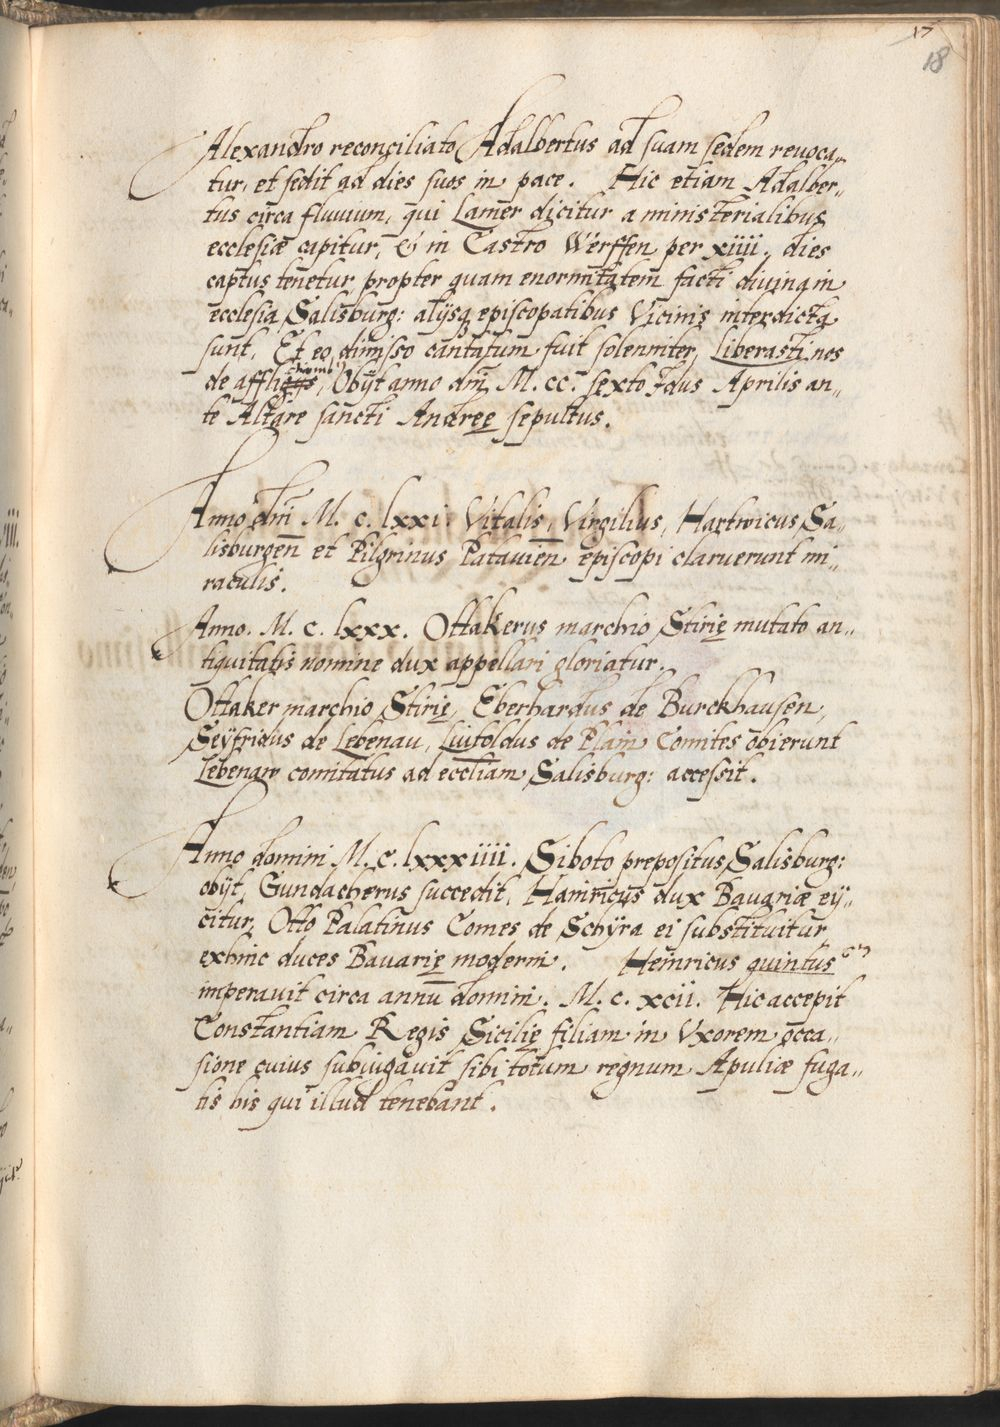 17
18
Alexandro reconciliato Adalbertus ad suam sedem reuoca„
tur, et sedit ad dies suos in pace. Hic etiam Adalber„
tus circa fluuium, qui Lamer dicitur a ministerialibus
ecclesiæ capitur, & in Castro Werffen per xiiii. dies
captus tenetur propter quam enormitatem facti diuina in
ecclesia Salisburg: alijsq episcopatibus Vicinis interdicta
sunt. Et eo dimisso cantatum fuit solenniter, Liberasti nos
de affli Obijt anno dnī M. cc. sexto Idus Aprilis an„
te Altare sancti Andreę sepultus.
Anno dnī M. c. lxxi. Vitalis, Virgilius, Hartwicus Sa„
lisburgen̄ et Pilgrinus Patauien̄ episcopi claruerunt mi„
raculis.
Anno. M. c. lxxx. Ottakerus marchio Stirię mutato an„
tiquitatis nomine dux appellari gloriatur.
Ottaker marchio Stirię, Eberhardus de Burckhausen,
Seÿfridus de Lebenau, Luitoldus de Plain Comites obierunt
Lebenaw comitatus ad eccliam Salisburg: accessit.
Anno domini M. c. lxxxiiii. Siboto prepositus Salisburg:
obijt, Gundacherus succedit, Hainricus dux Bauariæ eij„
citur, Otto Palatinus Comes de Schÿra ei substituitur
exhinc duces Bauarię moderni. Heinricus quintus
imperauit circa annū domini. M. c. xcii. Hic accepit
Constantiam Regis Sicilię filiam in Vxorem occa„
sione cuius subiugauit sibi totum regnum Apuliæ fuga„
tis his qui illud tenebant.